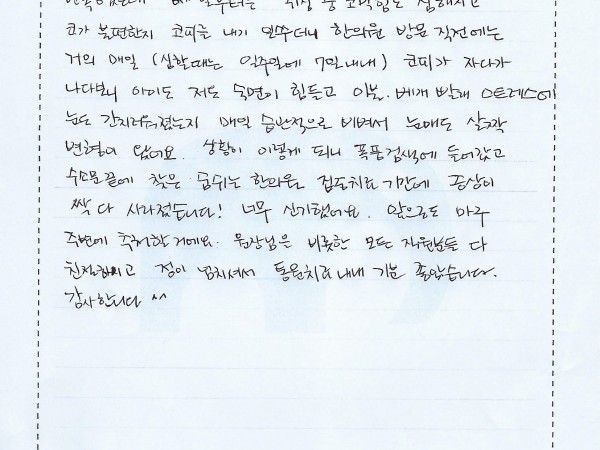 코가 불편한지 코피를 내기 일쑤더니 한의원 방문 직전에는
거의 매일 (심할때는 일주일에 7일 내내) 코피가 자다가
나다보니 아이도 저도 숙면이 힘들고 이불·베개 빨래 스트레스에
눈도 간지러워졌는지 매일 습관적으로 비벼서 눈매도 살짝
변형이 왔어요. 상황이 이렇게 되니 폭풍검색에 들어갔고
수소문끝에 찾은 숨쉬는 한의원 집중치료 기간에 증상이
싹 다 사라졌습니다! 너무 신기했어요. 앞으로도 마구
주변에 추천할거에요. 원장님은 비롯한 모든 직원분들 다
친절하시고 정이 넘치셔서 통원치료 내내 기분 좋았습니다.
감사합니다 ^^